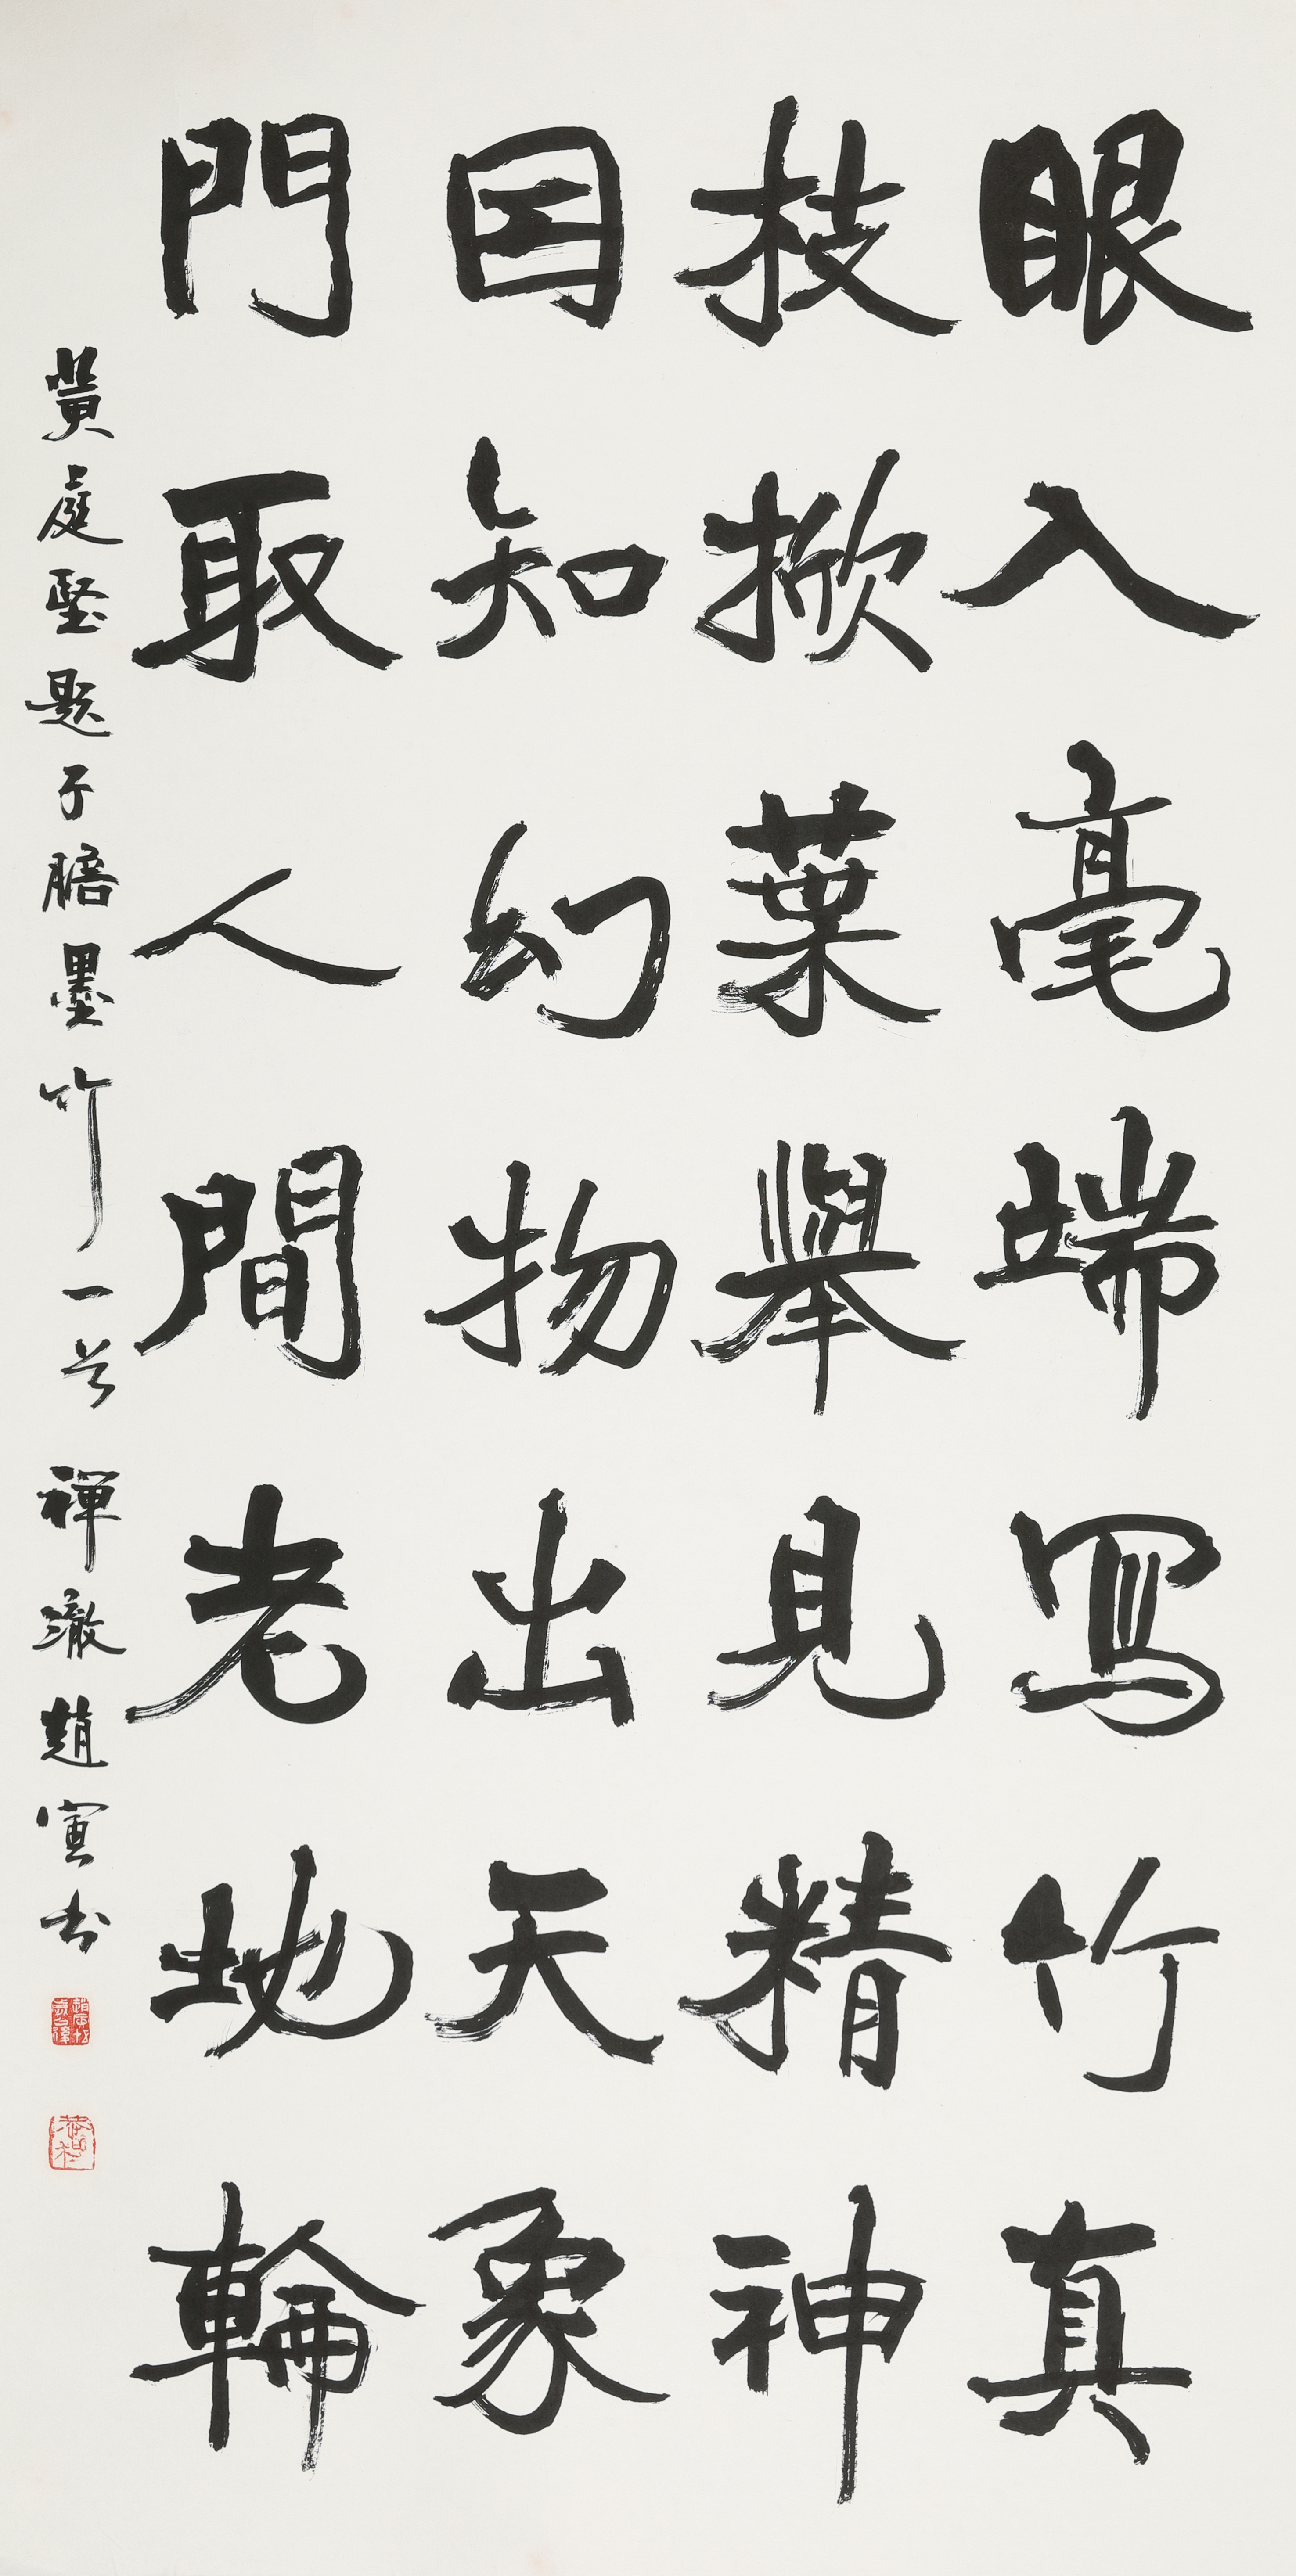 眼入毫端寫竹真
枝掀葉舉見精神
因知幻物出天象
問取人間老地輪
黃庭堅題子瞻墨竹一首 禪澈趙寅書